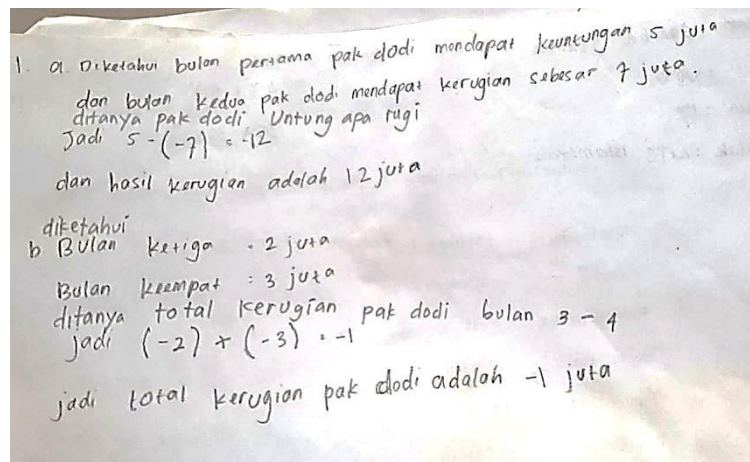 1. a. Diketahui bulan pertama pak dodi mendapat keuntungan 5 juta
dan bulan kedua pak dodi mendapat kerugian sebesar 7 juta.
ditanya pak dodi Untung apa rugi
Jadi 5 - (-7) = -12
dan hasil kerugian adalah 12 juta
diketahui
b Bulan ketiga = 2 juta
Bulan keempat : 3 juta
ditanya total kerugian pak dodi bulan 3 - 4
jadi (-2) + (-3) = -1
jadi total kerugian pak dodi adalah -1 juta